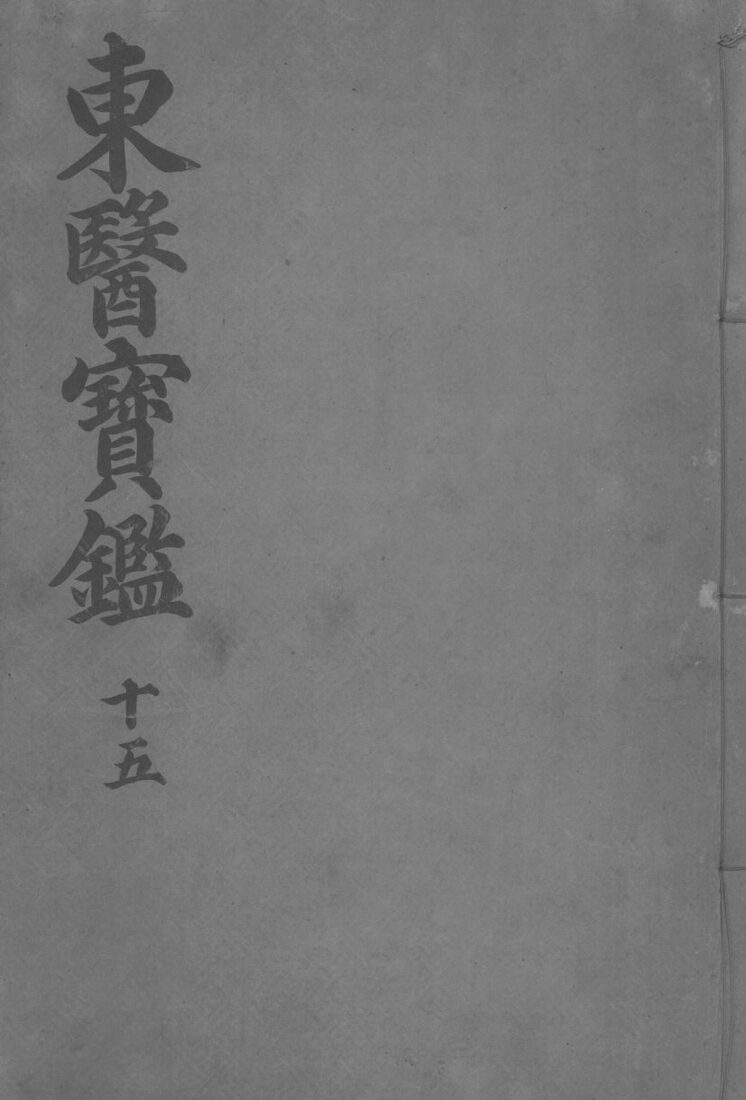 東醫寶鑑
十五